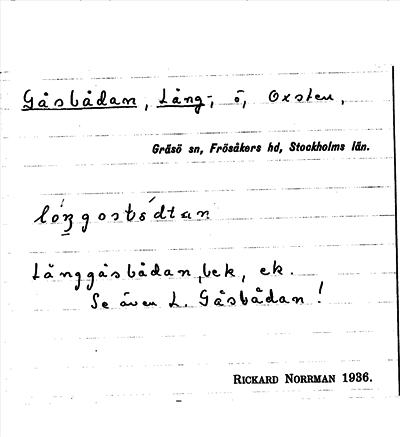 Gåsbådan, Lång-, ö, Oxsten,
Gräsö sn, Frösåkers hd, Stockholms län.
Långgåsbådan, bek, ek.
Se även L. Gåsbådan!
RICKARD NORRMAN 1936.